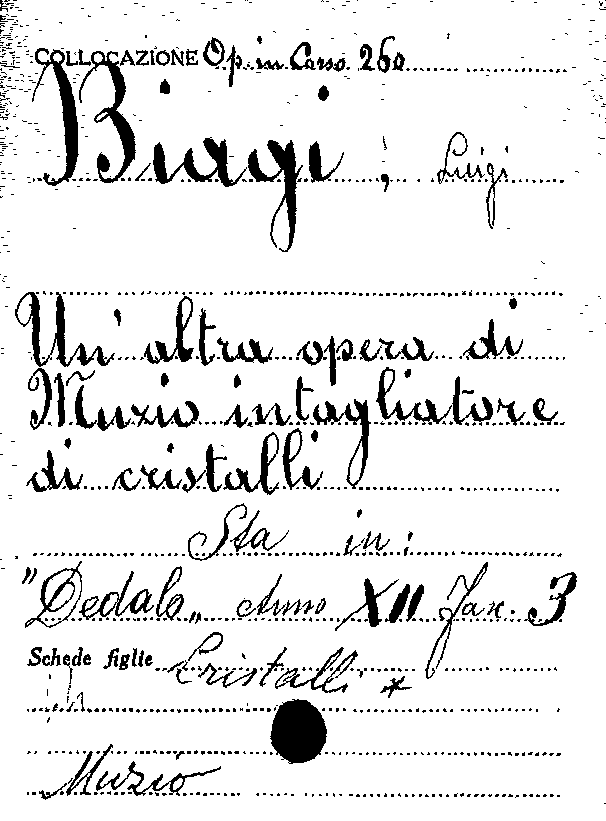 COLLOCAZIONE Op. in Corso 260
Biagi, Luigi
Un'altra opera di
Muzio intagliatore
di cristalli
Sta in:
"Dedalo„ Anno XII Fax. 3
Schede figlie Cristalli *
Muzio